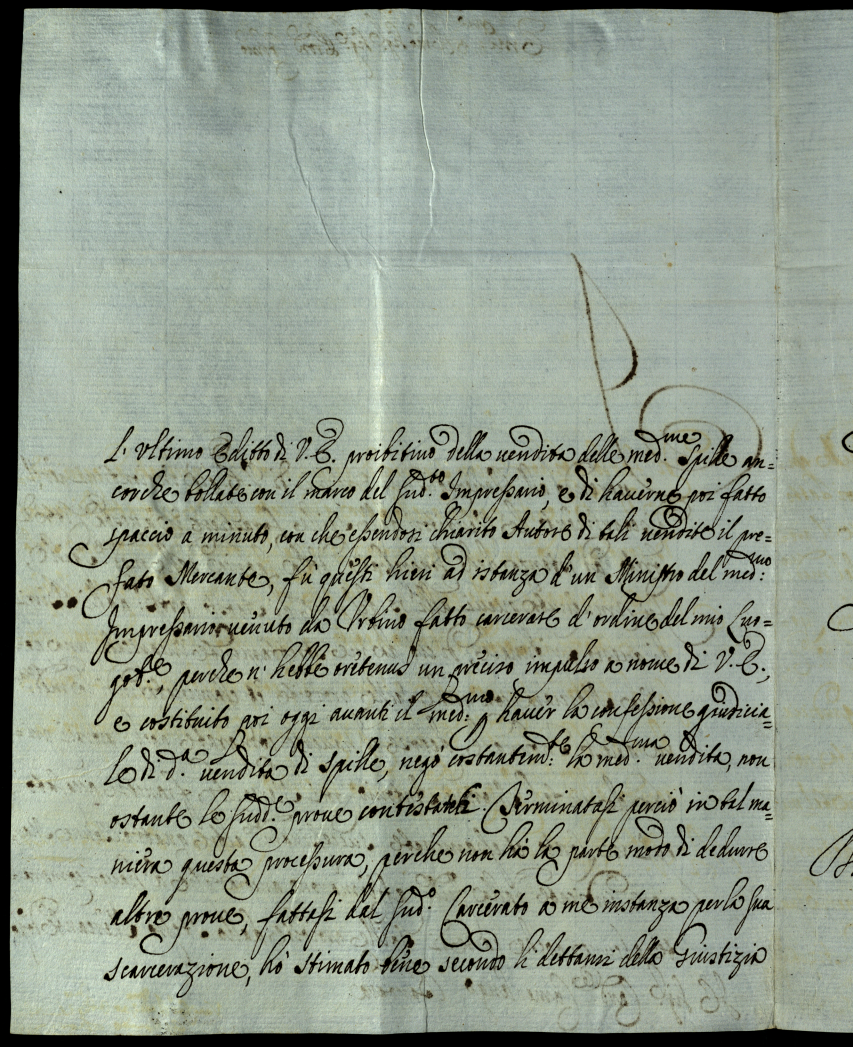 L'Vltimo Editto di V. E. proibitiuo della uendita delle med.me Spille an=
corche bollate con il marco del Sud.to Impressario, e di hauerne poi fatto
spaccio a minuto, con che essendosi chiarito Autore di tali uendite il pre=
fato Mercante, fù questi hieri ad istanza d'un Ministro del med.mo
Impressario uenuto da Vrbino fatto carcerare d'ordine del mio Luo=
got.e, perche n'hebbe oretenus un preciso impulso a nome di V. E.,
e costituito poi oggi auanti il med.mo p hauer la confessione giudicia=
le di d.a uendita di spille, negò costantem.te la med.ma uendita, non
ostante le Sudd.e proue contestateli. Terminatasi perciò in tal ma=
niera questa processura, perche non hà la parte modo di dedurre
altre proue, fattasi dal Sud.o Carcerato a me instanza per la sua
scarcerazione, hò stimato bene secondo li dettami della Giustizia